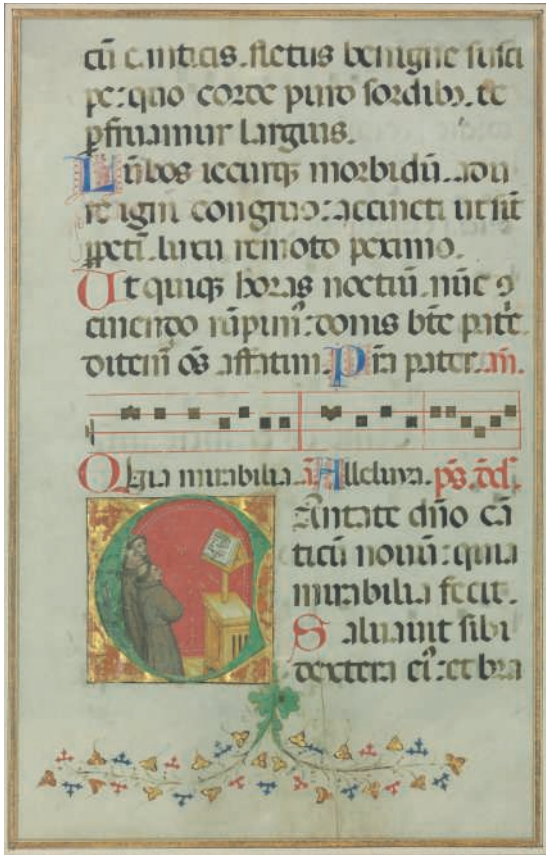 cū canticis. fletus benigne susci
pe: quo corde puro sordibꝰ. te
ꝑfruamur largius.
Lūbos iecurqꝫ morbidū. adu
re igni congruo: accincti ut sīt
ꝑpeti. luxu remoto peximo.
Ut quiqꝫ horas noctiū. nūc ꝯ
cinendo rūpimꝰ: donis btē pat̄e
ditemꝰ oēs affatim. Pr̄a pater. an̄.
Quia mirabilia. an̄. Alleluya. pꝰ. dd̄.
Cantate dn̄o cā
ticū novū: quia
mirabilia fecit.
Salvavit sibi
dextera eiꝰ: et bra